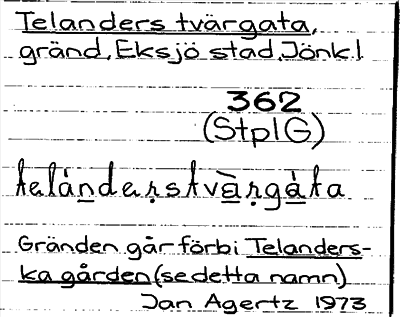 Telanders tvärgata,
gränd, Eksjö stad, Jönk l
362
(StplG)
telándeṛstvä̀ṛgàta
Gränden går förbi Telanders-
ka gården (se detta namn)
Jan Agertz 1973